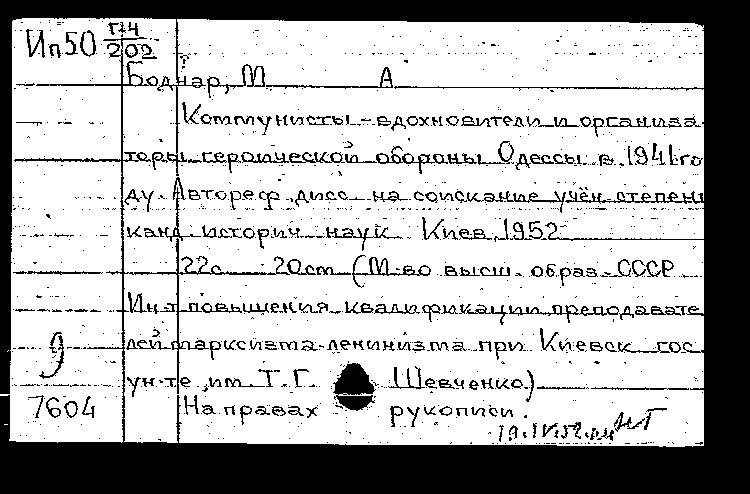 Ип50 Г-4
202
Боднар, М А
Коммунисты - вдохновители и организа-
торы героической обороны Одессы в 1941 го-
ду. Автореф. дисс. на соискание учён. степени
канд. историч. наук. Киев, 1952
22с 20см (М-во высш. образ. СССР
Ин-т повышения квалификации преподавате-
лей марксизма-ленинизма при Киевск. гос.
9
ун-те им. Т. Г. Шевченко)
7604 На правах рукописи.
19.IV.52.